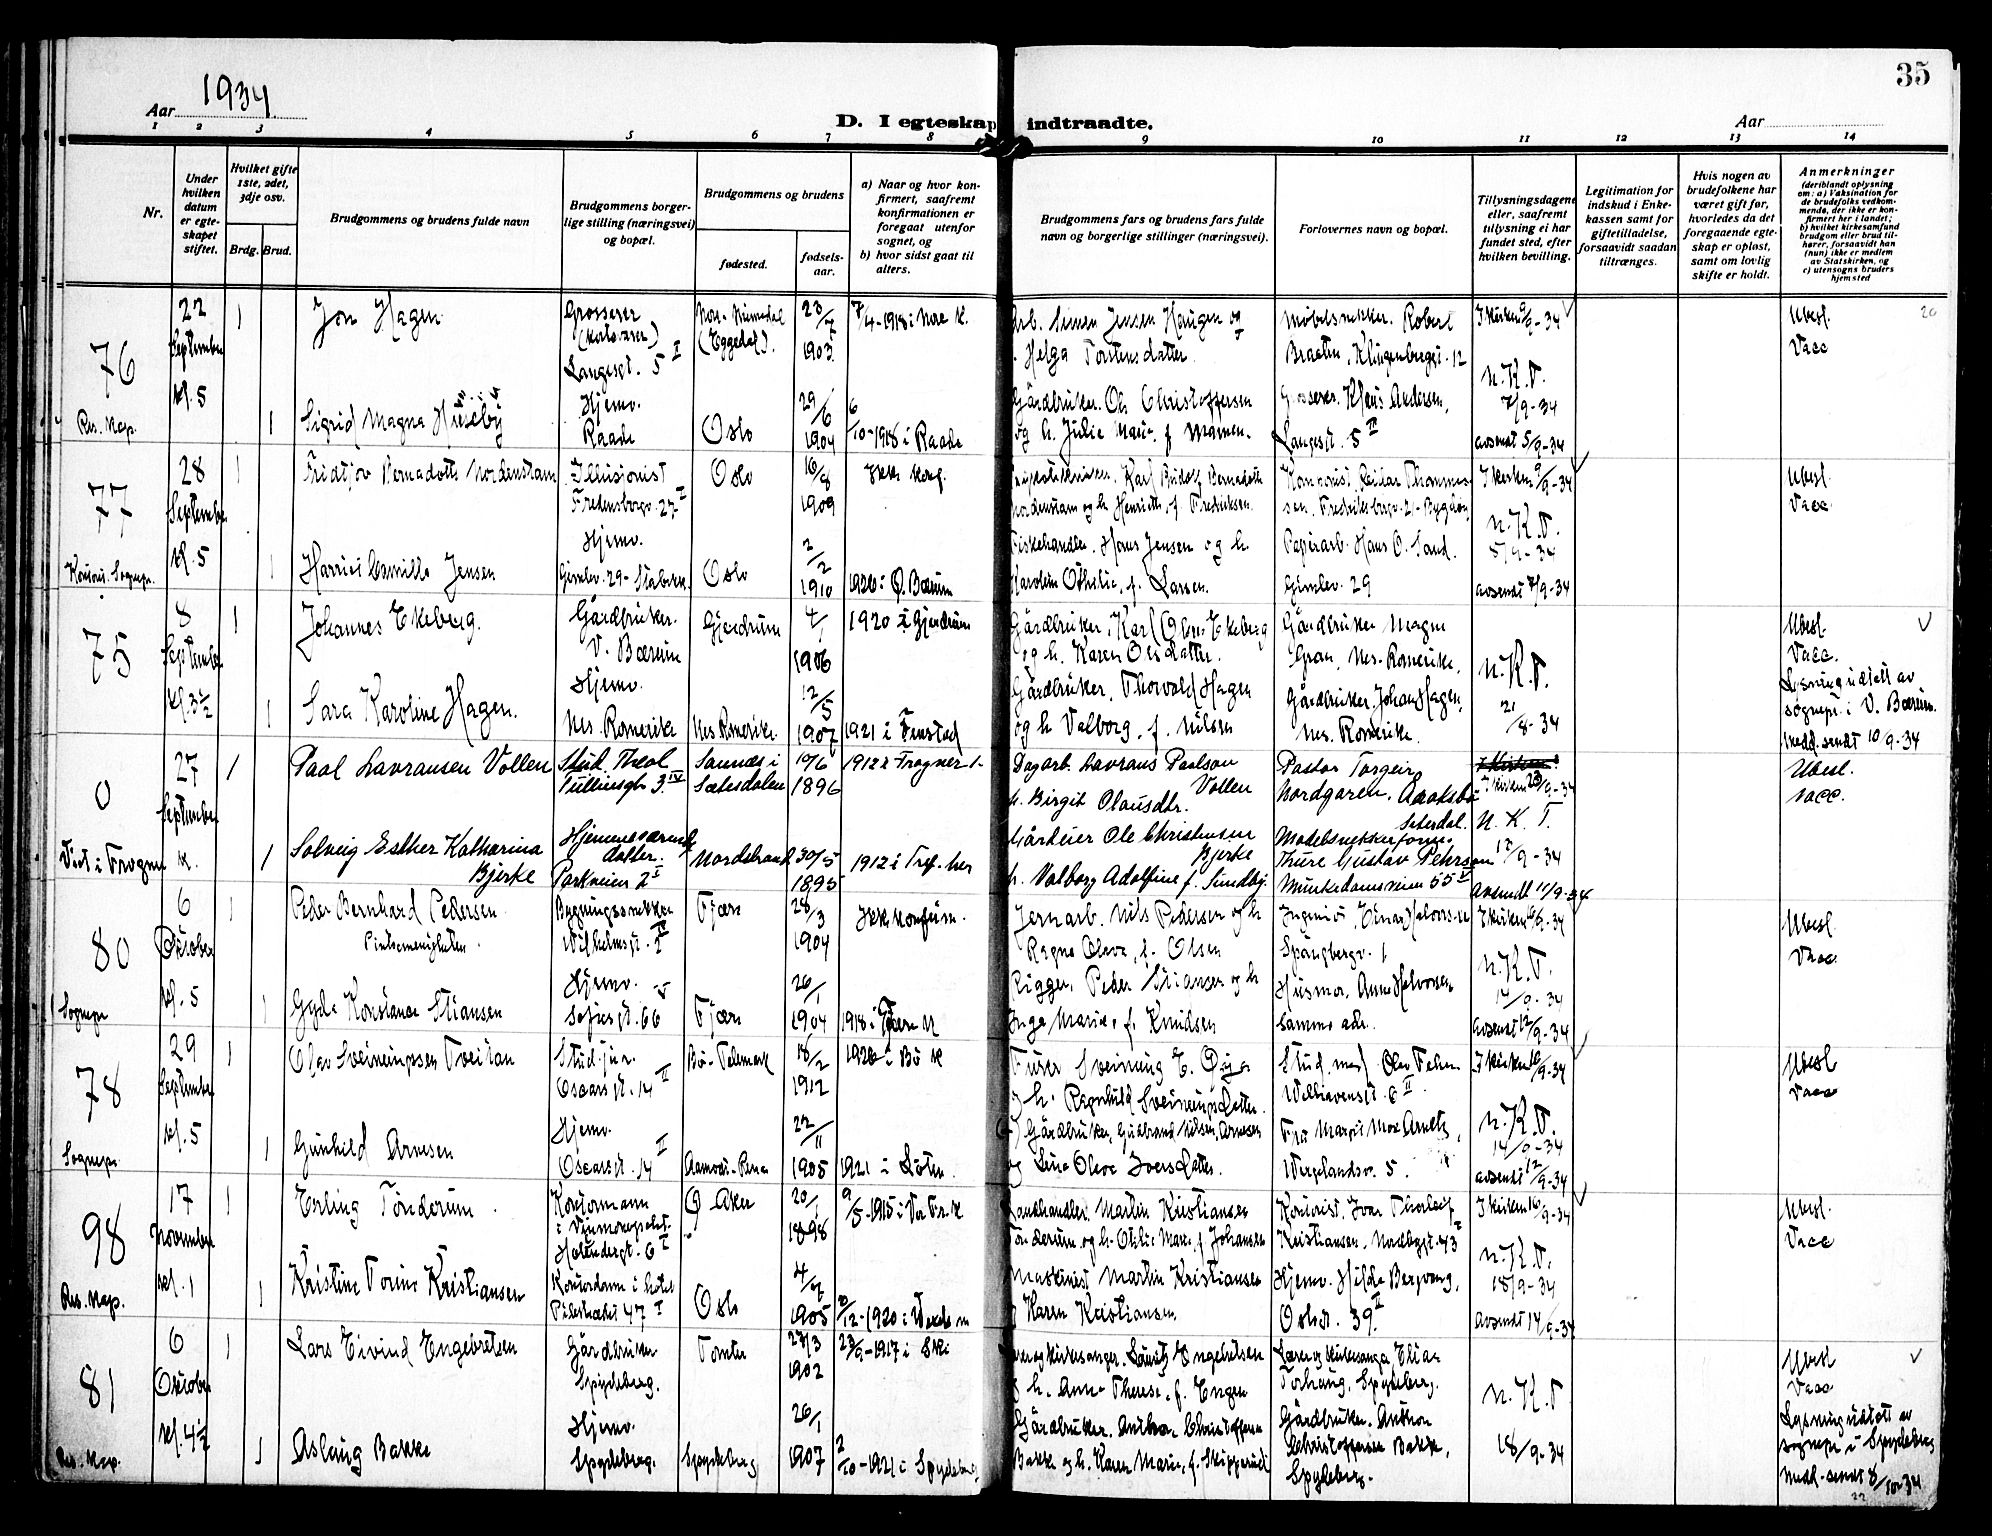 35
Aar 1934
D. I egteskap indtraadte.
Aar
1 2 3 4 5 6 7 8 9 10 11 12 13 14
Nr.
Under hvilken datum er egte-skapet stiftet.
Hvilket gifte 1ste, 2det, 3dje osv.
Brdg. Brud.
Brudgommens og brudens fulde navn
Brudgommens borger-lige stilling (næringsvei) og bopæl.
Brudgommens og brudens
fødested.
fødsels-aar.
a) Naar og hvor kon-firmert, saafremt konfirmationen er foregaat utenfor sognet, og
b) hvor sidst gaat til alters.
Brudgommens fars og brudens fars fulde navn og borgerlige stillinger (næringsvei).
Forlovernes navn og bopæl.
Tillysningsdagene eller, saafremt tillysning ei har fundet sted, efter hvilken bevilling.
Legitimation for indskud i Enke-kassen samt for giftetilladelse, forsaavidt saadan tiltrænges.
Hvis nogen av brudefolkene har været gift før, hvorledes da det foregaaende egte-skap er opløst, samt om lovlig skifte er holdt.
Anmerkninger
(deriblandt oplysning om: a) Vaksination for de brudefolks vedkom-mende, der ikke er kon-firmert her i landet; b) hvilket kirkesamfund brudgom eller brud til-hører, forsaavidt han (hun) ikke er medlem av Statskirken, og c) utensogns bruders hjemsted
76
22 September kl. 5
Res. kap.
1 Jon Hagen
Grosserer
Langesgt. 5 II
Nore - Numedal (Eggedal).
23/7 1903
7/4-1918 i Nore k.
arb. Simen Jensen Haugen og
h. Helga Torstensdatter
Møbelsnekker Robert
Braaten, Klingenberggt. 12
I kirken 9/9-34
N.K.T.
7/9-34
avsendt 5/9-34
Ubesl.
Vacc
1 Sigrid Magna Huseby
Hjemv.
Raade
Oslo
29/6 1904
6/10-1918 i Raade
Gårdbruker Ole Christoffersen
og h. Julie Marie f. Mamen.
Grosserer Klaus Andersen,
Langesgt. 5 II
77
28 September kl. 5
Konst. Sognepr.
1 Fridtjov Bernadotte Nordenstam
Illusjonist
Fredensborgv. 27 I
Oslo
16/8 1909
Ikke konf.
Karl Rudolf Bernadotte
Nordenstam og h. Henriette f. Fredriksen
Kontorist Reidar Thommes-
sen, Fredriksborgv. 21 - Bygdøy
I kirken 9/9-34
N.K.T.
5/9-34
avsendt 7/9-34
Ubesl.
Vacc.
1 Harriet Camilla Jensen
Hjemv.
Gimlev. 29 - Stabekk.
Oslo
2/2 1910
1926 i Ø. Bærum
Fiskehandler Hans Jensen og h.
Karoline Othilie, f. Larsen.
Papirarb. Hans O. Sand.
Gimlev. 29
75
8 September kl. 3 1/2
1 Johannes Ekeberg.
Gårdbruker
V. Bærum
Gjerdrum
4/1 1906
1920 i Gjerdrum
Gårdbruker Karl Olsen Ekeberg
og h. Karen Olsdatter.
Gårdbruker Magne
Gran, Nes. Romerike.
N.K.T.
21/8-34
Ubesl.
Vacc.
Lysning utstedt av
sognepr. i V. Bærum.
Medd. sendt 10/9-34
1 Sara Karoline Hagen.
Hjemv.
Nes. Romerike
Nes Romerike.
12/5 1907
1921 i Fenstad
Gårdbruker Thorvald Hagen
og h Valborg f. Nilsen
Gårdbruker Johan Hagen,
Nes. Romerike.
0
27 September k.
Viet i Frogner
1 Paal Lavransen Vollen
Stud. Theol
Tullinsgt. 3 IV
Sannes i Setesdalen
10/6 1896
1912 i Frogner k
Dagarb. Lavrans Paalson
Vollen
h. Birgit Olausdtr.
Pastor Torgeir
Nordgaren, Aaraksbø
Setesdal.
I kirken 23/9-34
N. K. T.
12/9-34
Avsendt 11/9-34
Ubesl.
Vacc.
1 Solveig Esther Katharina
Bjerke
Hjemmeværende
datter.
Parkveien 2 I
Nordstrand
30/5 1895
1912 i Tref. her
Gårdeier Ole Christensen
Bjerke
h. Valborg Adolfine f. Sundby.
Modelsnekkerformann
Thure Gustav Pehrson
Munkedamsveien 55 V
80
6 Oktober kl. 5
Sognepr
1 Peder Bernhard Pedersen
Pinsemenigheten
Bygningssnekker
Wilhelmsgt. 2
Tjøm
28/3 1904
Ikke konfirm.
Jernarb. Nils Pedersen og h
Ragna Oleva, f. Olsen
Ingeniør Einar Halvorsen
Spångbergv. 1
I kirken 16/9-34
N.K.T.
14/9-34
avsendt 12/9-34
Ubesl.
Vacc
1 Gyda Konstanse Stiansen
Hjemv.
Sofiesgt. 66 V
Tjøm
26/1 1904
1918 i Tjøm K
Rigger Peder Stiansen og h
Inga Marie, f. Knudsen
Husmor Anna Halvorsen
samme adr.
78
29 September kl. 5
Sognepr
1 Olav Sveinungssen Tveitan
Stud. jur.
Oscarsgt. 14 II
Bø - Telemark
18/2 1912
1926 i Bø K
Furer Sveinung E.
og h. Ragnhild Sveinungsdatter.
Stud. med. Olav Felen
Welhavensgt. 6 II
I kirken 16/9-34
N.K.T.
14/9-34
avsendt 12/9-34
Ubesl
Vacc
1 Gunhild Arnesen
Hjemv.
Oscarsgt. 14 II
Aamot - Rena
22/11 1905
1921 i Løten
Gårdbruker Gudbrand Nilsen Arnesen
og Lina Oleva Iversdatter.
Fru Margit Moe Arnets,
Wergelandsv. 5.
98
17 November kl. 1
Res. kap.
1 Erling Tønderum
Kontormann
i Vinmonopolet
Holendergt. 6 I
Ø Aker
20/1 1898
9/5-1915 i Vor Fr. K
Landhandler Martin Kristiansen
Tønderum og h. Othilie Marie f Johansen
Kontorist Ivar Thorleif
Kristiansen. Nordbygt. 43 I
I kirken 16/9-34
N.K.T.
18/9-34
avsendt 14/9-34
Ubesl.
Vacc
1 Kristine Torine Kristiansen
Kontordame i hotel
Pilestredet 47 I
Oslo
4/7 1905
Maskinist Martin Kristiansen
og Karen Kristiansen.
Hjemv. Hilda Bergvang,
Oslogt. 39 II
81
6 Oktober kl. 4 1/2
Res. kap.
1 Lars Eivind Engebretsen
Gårdbruker
Spydeberg.
Tomter
23/3 1902
23/9-1917 i Ski
Lærer og kirkesanger Lauritz Engebretsen
og h. Anna Therese, f. Engen
Lærer og kirkesanger Elias
Torhaug, Spydeberg.
N.K.T
18/9-34
Ubesl
Vacc
Lysning utstedt av
sognepr i Spydeberg
Medd. sendt 8/10-34
1 Aslaug Bakke
Hjemv.
Spydeberg.
Spydeberg
26/1 1907
2/10-1921 i Spydeberg
Gårdbruker Anthon Christoffersen
Bakke og h. Karen Marie, f. Skipperud
Gårdbruker Anthon
Christoffersen Bakke,
Spydeberg.